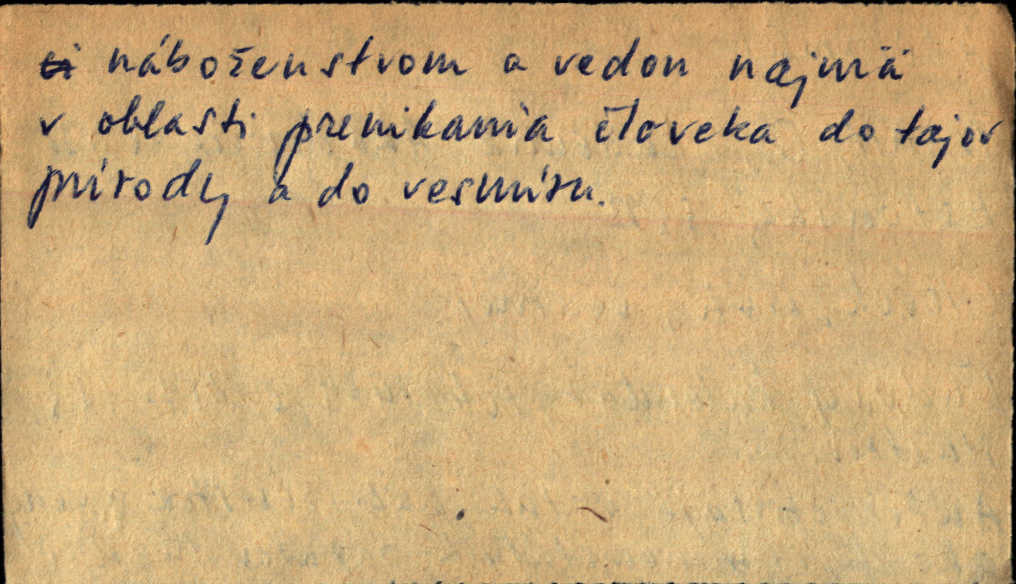 náboženstvom a vedou najmä
v oblasti prenikania človeka do tajov
prírody a do vesmíru.